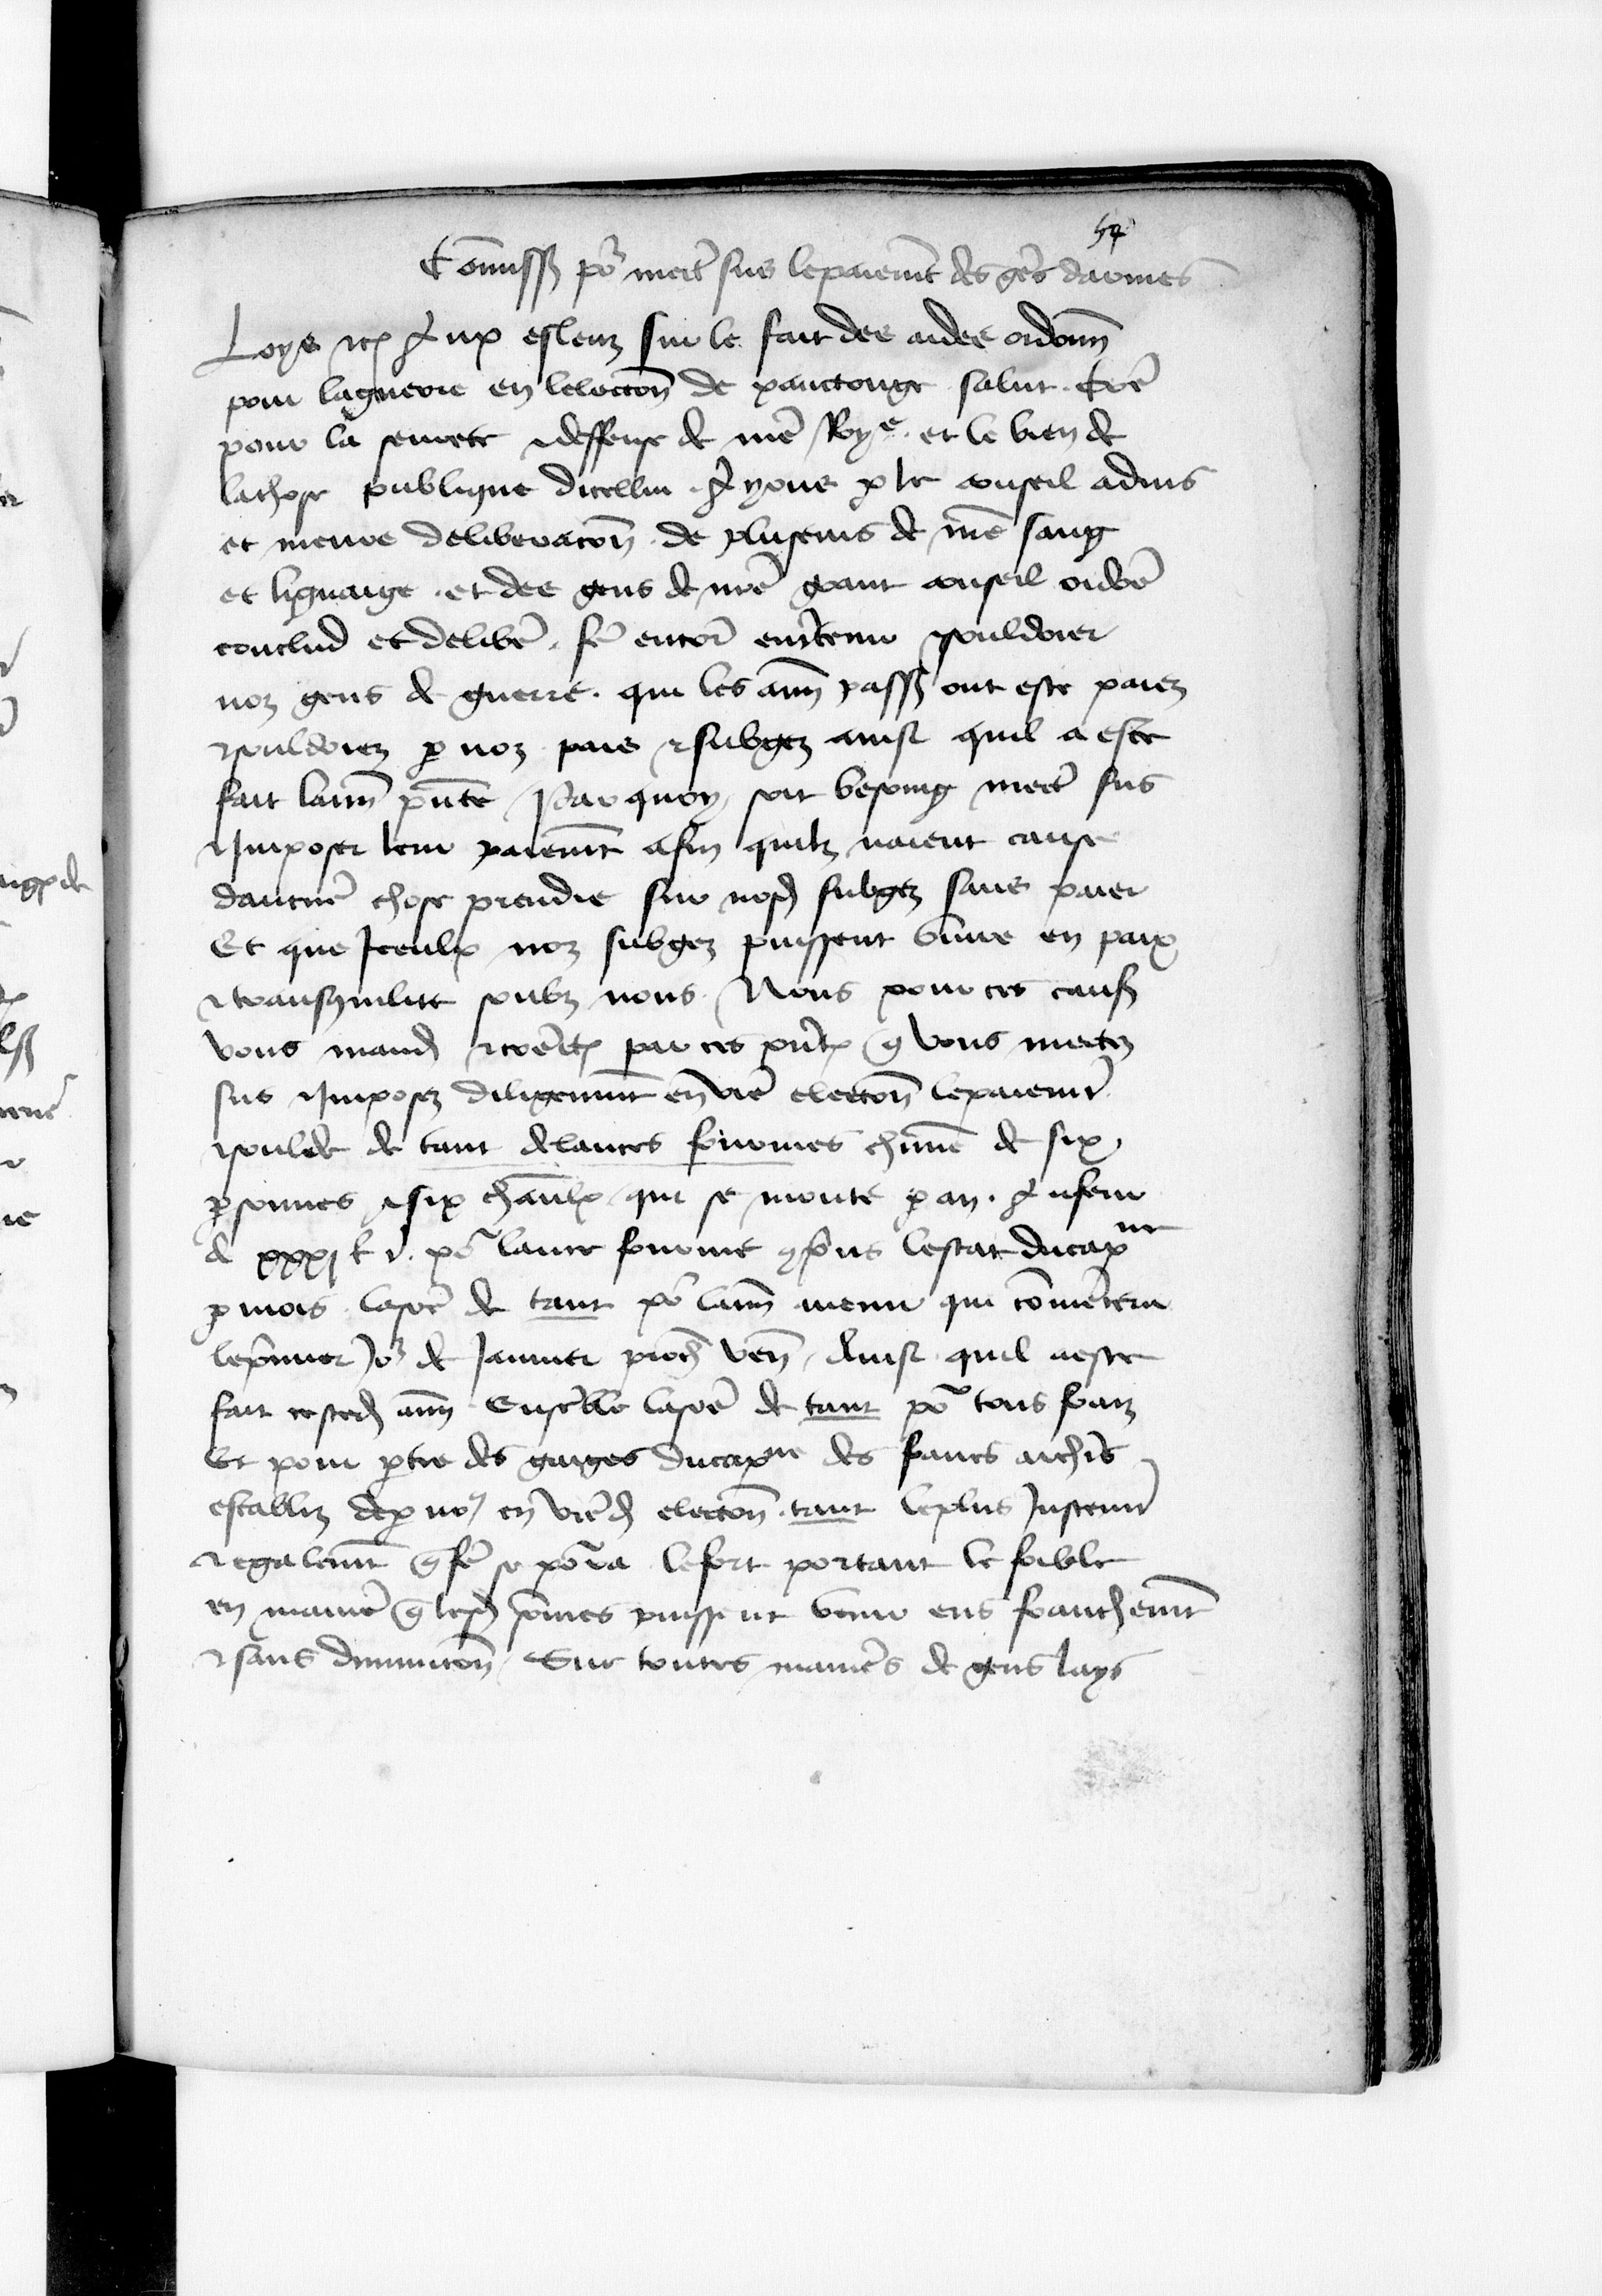 54
Commiss pour mectre sus le paiemt des gens darmes
Loys etc. A nx esleuz sur le fait des aides ordonn
pour la guerre en lelection de xanctonge salut. Come
pour la seurete & deffense de nre Roye. et le bien de
la chose publique dicellui. Ayons p le conseil advis
et meure deliberacon de pluseurs de nre sang
et lignaige. et des gens de nre grant conseil ordone
conclud et delibere. fe encore entretenir & souldoier
noz gens de guerre. qui les ann passz ont este paiez
& souldoiez p noz pais & subgez ainsi quil a este
fait lann pnte / Par quoy soit besoing mectre sus
& Imposer leur paiemt afin quilz naient cause
dautre chose prendre sur nosd subgez sans paier
Et que Iceulx noz subgez puissent vivre en paix
& transquilite soubz nous. Nous pour ces causes
vous mandons & comectons par ces pntes que vous mectez
sus & Imposez diligemmt en vre election le paiemt
& soulde de tant de lances fournies chune de six
psonnes & six chaulx qui se monte p an. A nfeur
de xxxj l t. por lance fournie comprins lestat du cappne
p mois. la some de tant por lann avenir qui comencera
le pmier jor de Janvier proch ven. Ainsi quil a este
fait cested ann Ensemble la some de tant por tous fraiz
Et pour ptie des gaiges du cappne des francs archiers
establiz de p nous en vred election. tant le plus Justemt
& egalemt que fe se porra le fort portant le foible
en maniere que lesd somes puissent venir ens franchemt
& sans diminucon / Sur toutes manieres de gens lays